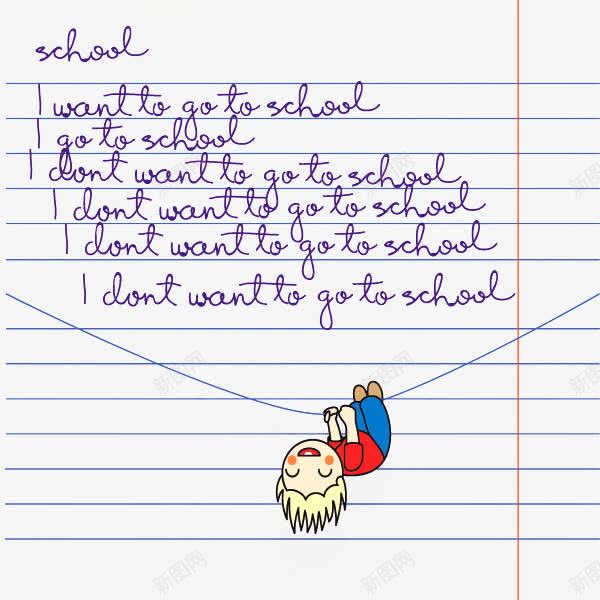 school
I want to go to school
I go to school
I dont want to go to school
I dont want to go to school
I dont want to go to school
I dont want to go to school
新图网
新图网
新图网
新图网
新图网
新图网
新图网
新图网